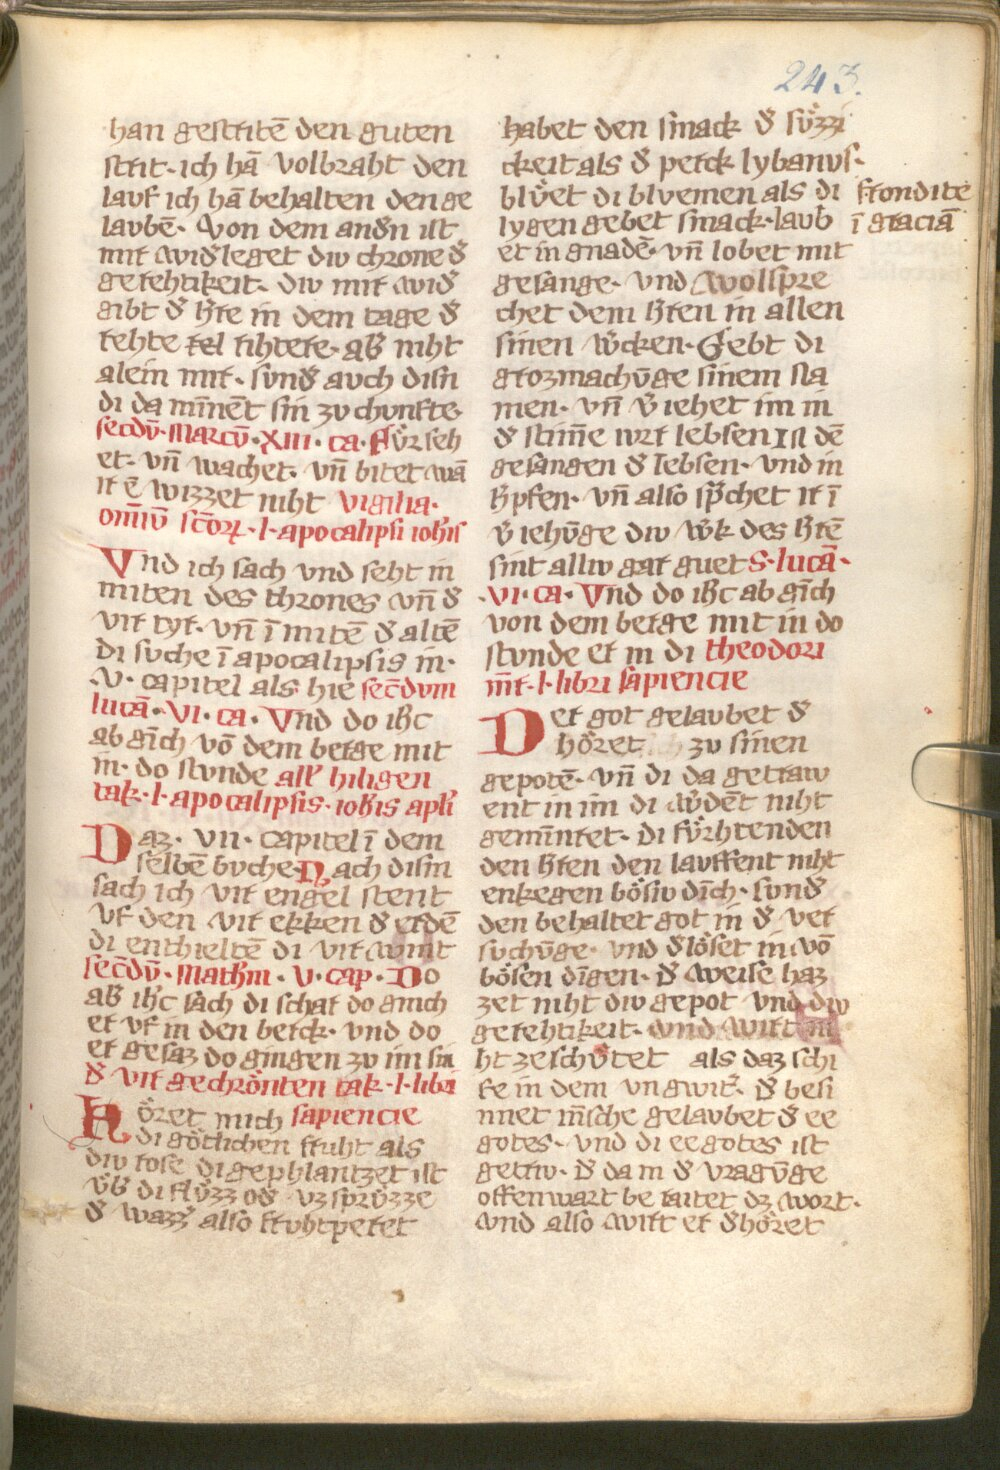 243.
han gestritē den guten
strit· ich hā volbraht den
lauf ich hā behalten den ge
laubē· Von dem and̄n ist
mir wid̄leget diu chrone d̄
gerehtikeit· diu mir wid̄
gibt d̄ h̄re in dem tage d̄
rehte rihtere· ab̄ niht
alein mir· sund̄ auch disn
di da minnēt sin zu chunfte·
secdū· Marcū· XIII· ca· Fu̍rseh
et· vn̄ wachet· vn̄ bitet wā
ir ē wizzet niht vigilia·
omīū sc̄orꝝ· l· apocalipsi ioh̄is
Vnd ich sach vnd seht in
miten des thrones vn̄ d̄
vir tyr· vn̄ ī mitē d̄ altē
Di suche ī apocalipsis in·
·v· capitel als hie sec̄dum
lucā· VI· ca· Vnd do ih̄c
ab gīch vō dem berge mit
in· do stunde all̄ hiligen
tak· l· apocalipsis· ioh̄is apl̄i
Daz· VII· capitel ī dem
selbē buche· Nach disin
sach ich vir engel stent
vf den vir ekken d̄ erdē
di enthieltē di vir wint
sec̄dū· Math̄m· V· cap· Do
ab̄ ih̄c sach di schar do ginch
er vf in den berck· vnd do
er gesaz do gingen zu im sin
d̄ vir gechrönten tak· l· libri
Höret mich sapiencie
di götlichen fruht als
diu rose di gephlantzet ist
üb̄ di flüzz od̄ vz sprüzze
d̄ wazz̄ also fruhtperet
habet den smack d̄ süzzi
ckeit als d̄ perck lybanus·
blüet di bluemen als di
frondite
lygen gebet smack· laub
ī graciā
et in gnadē· vn̄ lobet mit
gesange· vnd wollspre
chet dem h̄ren in allen
sinen w̄cken· Gebt di
grozmachūge sinem na
men· vn̄ v̄iehet im in
d̄ stim̄e iwr lebsen In dē
gesangen d̄ lebsen· vnd in
h̄pfen· vn̄ also sp̄chet ir ī
v̄iehūge diu w̄k des h̄rē
sint alliu gar guet S· lucā·
·VI· ca· Vnd do ih̄c ab gīch
von dem berge mit in do
stunde er in di theodori
m̄r· l· libri sapiencie
Der got gelaubet d̄
höret zu sinen
gepotē· vn̄ di da getraw
ent in im di w̄dēt niht
gemin̄ret· di fürhtenden
den h̄ren den lauffent niht
enkegen bösiu dīch· sund̄
den behaltet got in d̄ ver
suchūge· vnd d̄löset in vō
bösen dīgen· d̄ weise haz
zet niht diu gepot vnd diu
gerehtikeit· vnd wirt ni
ht zeschütet als daz schi
fe in dem vngwit̄· d̄ besi
nnet m̄sche gelaubet d̄ ee
gotes· vnd di ee gotes ist
getriu· d̄ da in d̄ vragūge
offenwart beraitet dz wort·
vnd also wirt er d̄höret